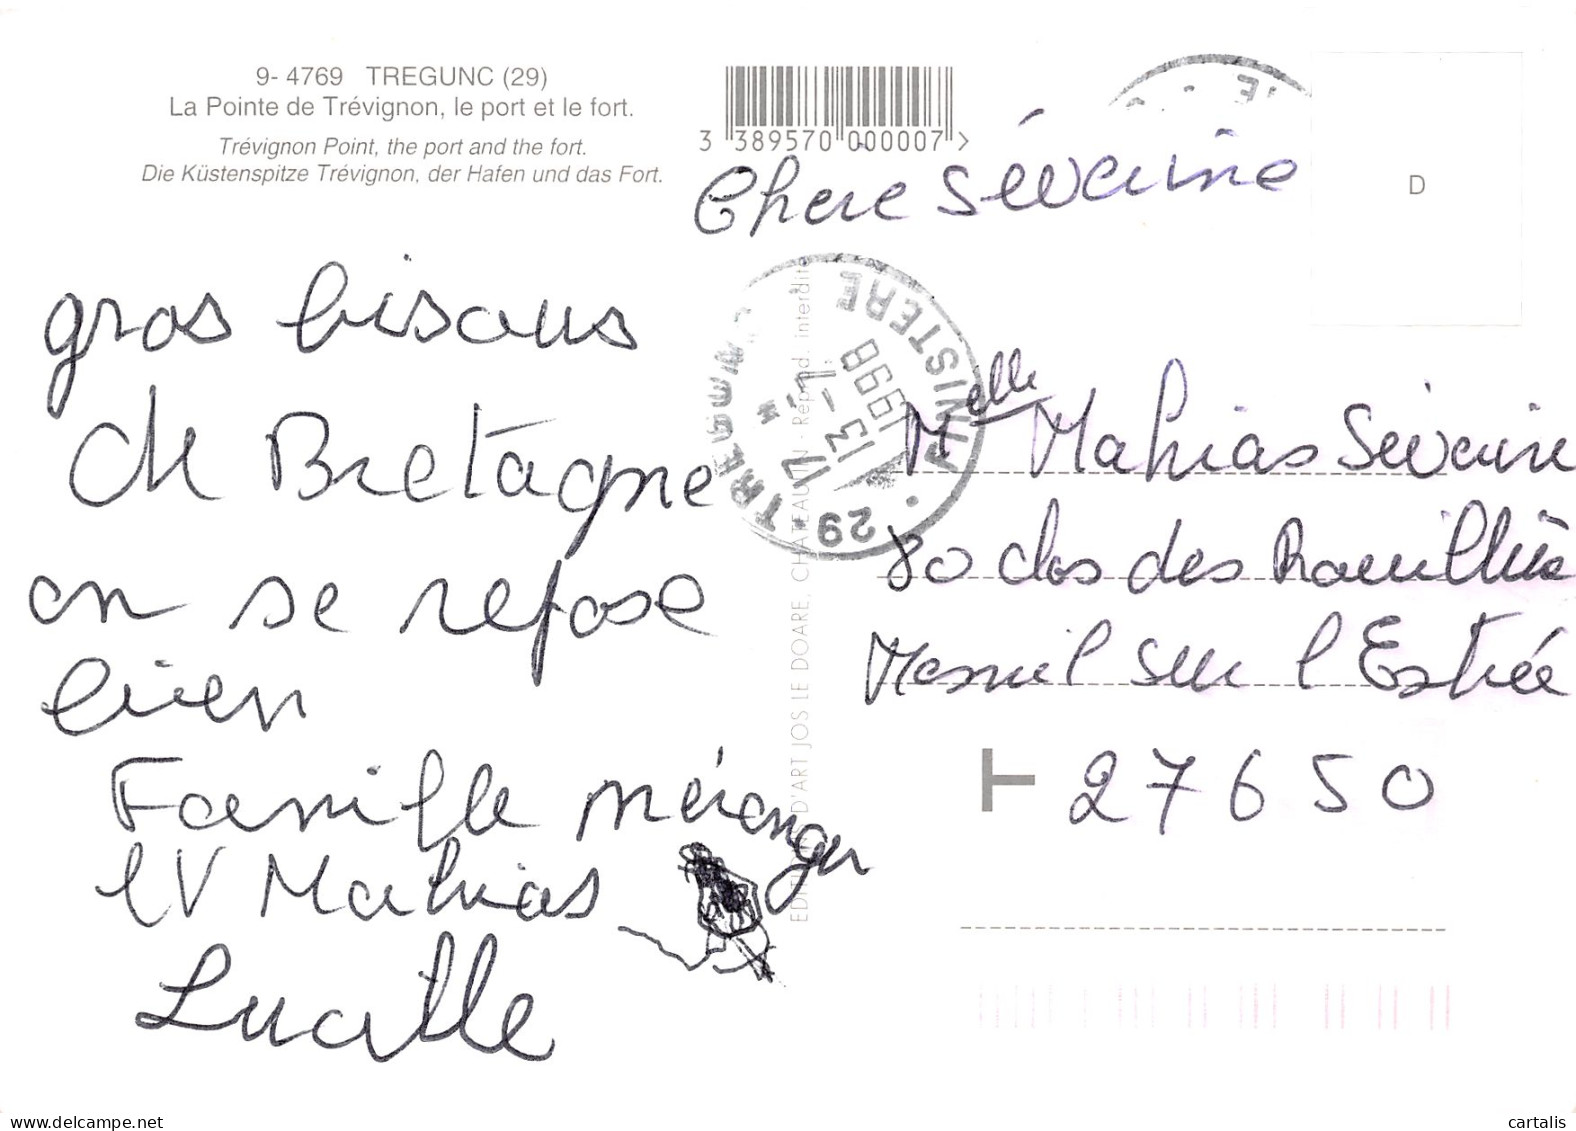 9- 4769 TREGUNC (29)
La Pointe de Trévignon, le port et le fort.
Trévignon Point, the port and the fort.
Die Küstenspitze Trévignon, der Hafen und das Fort.
3 389570 000007 >
D
Cherie Séverine
gros bisous
de Bretagne
on se repose
bien
Famille méranger
Mahias
Lucille
29 TREGUNC
17 -
1998
FINISTERE
EDITIONS D'ART JOS LE DOARE, CHATEAULIN - Reprod. interdite
Melle Mahias Séverine
clos des
Mesnil sur l Estrée
T 27650
delcampe.net
cartalis